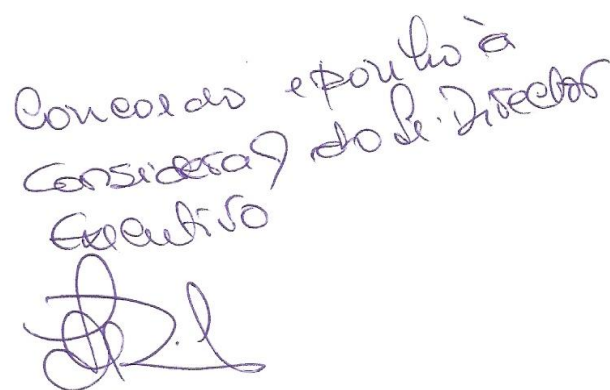 Concordo e ponho à
consideração do Sr. Director
Executivo